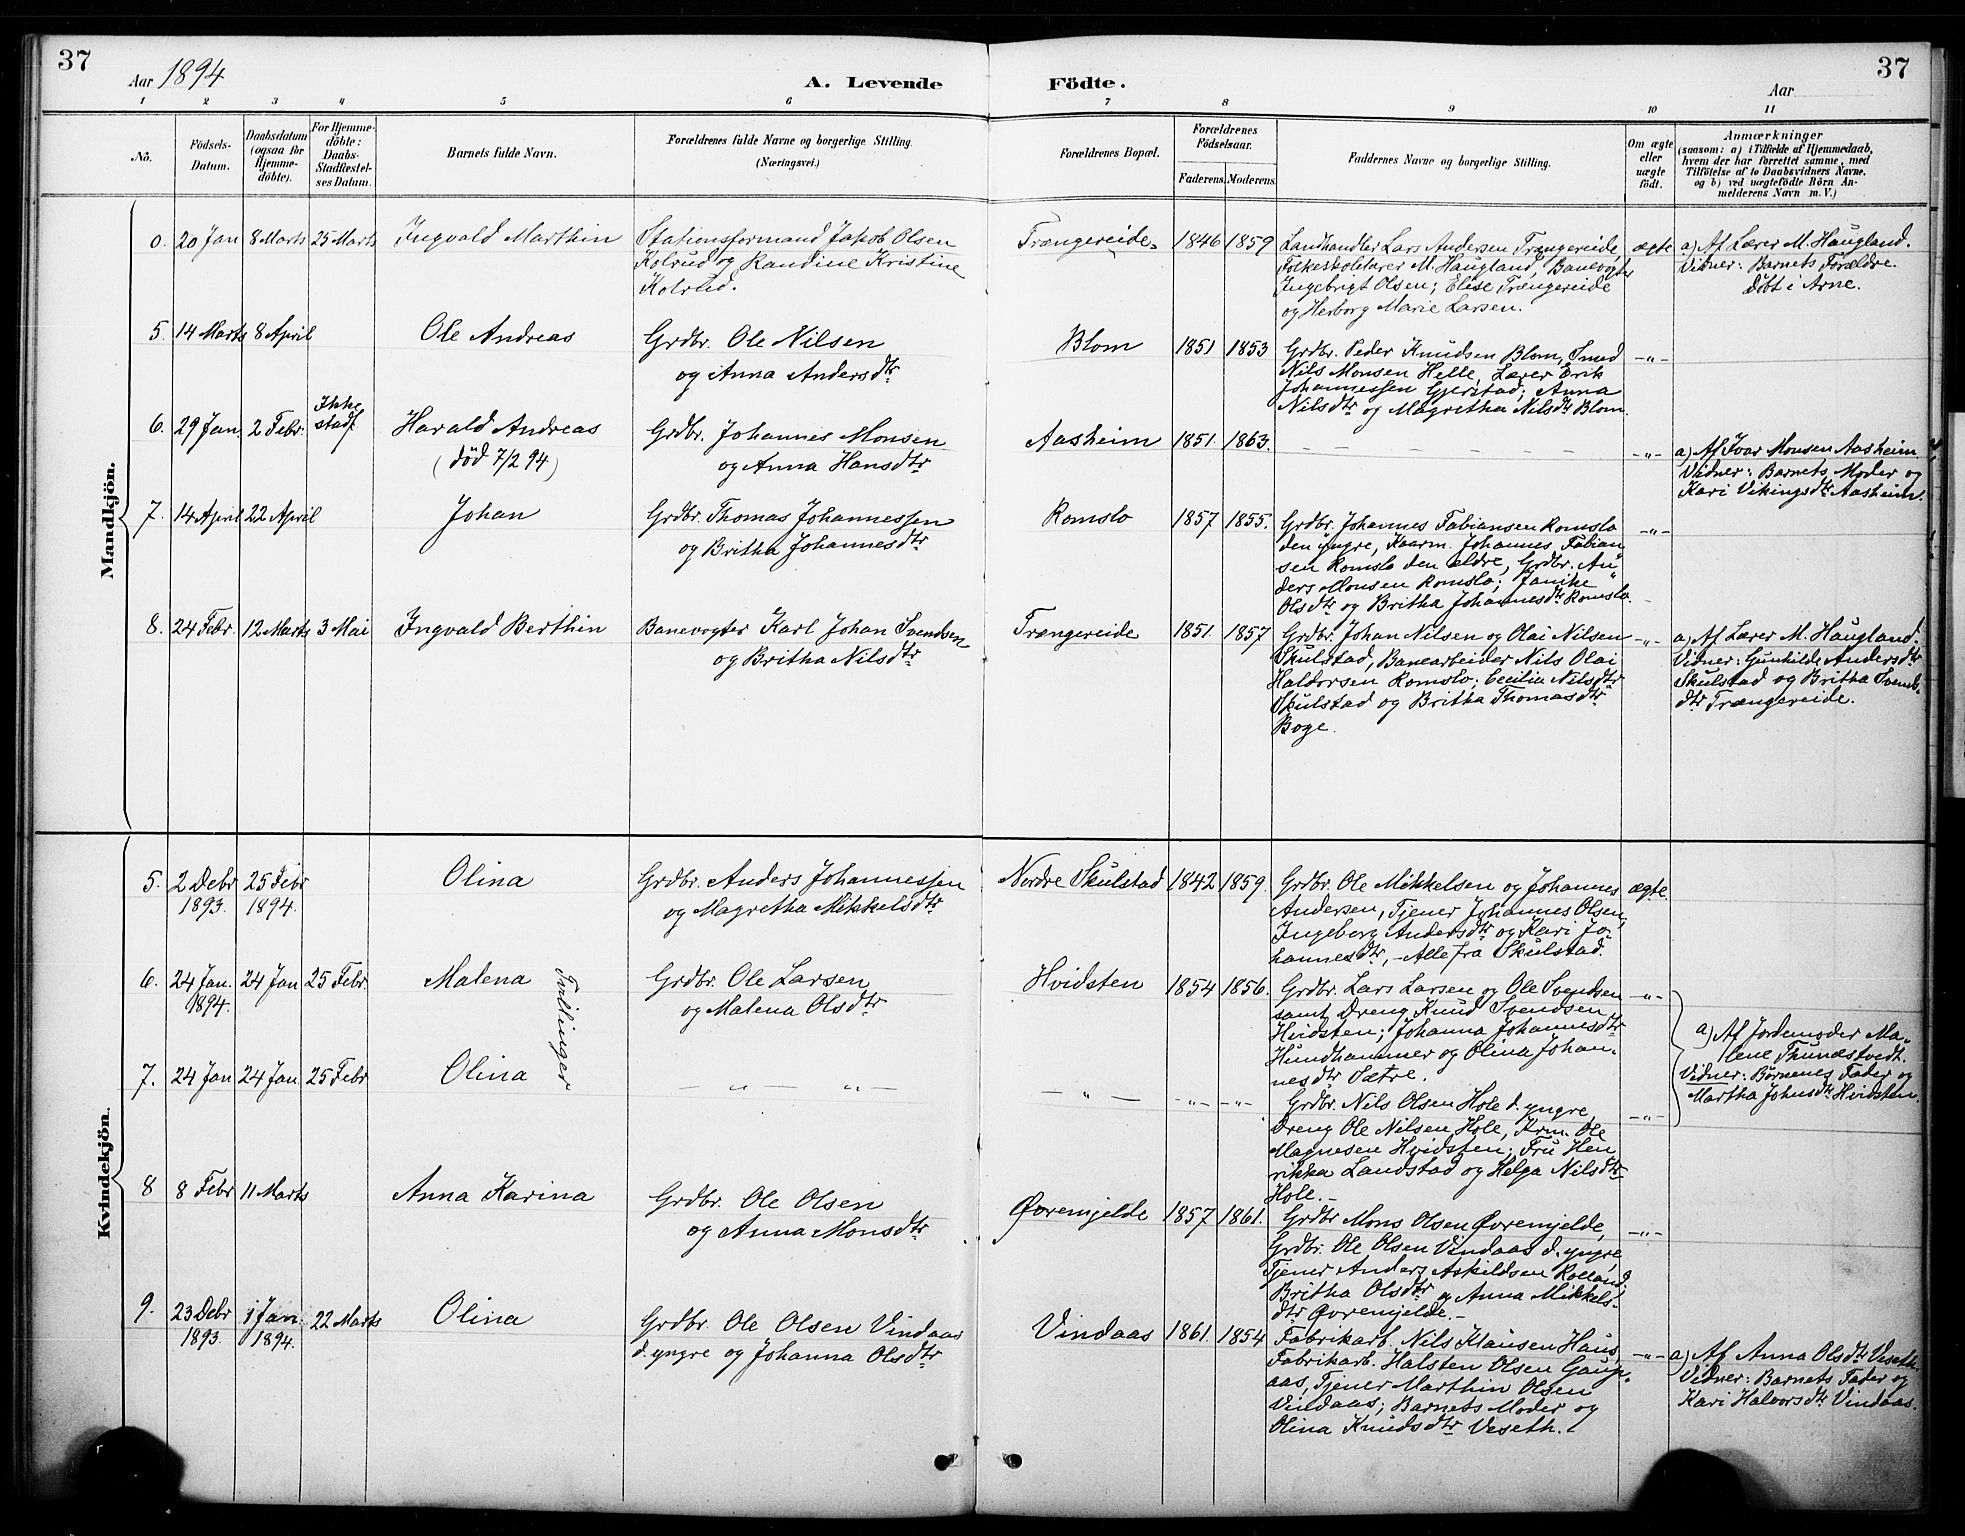 37
Aar 1894
A. Levende Födte.
Aar
37
1 2 3 4 5 6 7 8 9 10 11
No.
Födsels-
Datum.
Daabsdatum
(ogsaa for
Hjemme-
döbte).
For Hjemme-
döbte:
Daabs-
Stadfæstel-
ses Datum.
Barnets fulde Navn.
Forældrenes fulde Navne og borgerlige Stilling.
(Næringsvei.)
Forældrenes Bopæl.
Forældrenes
Födselsaar.
Faderens. Moderens.
Faddernes Navne og borgerlige Stilling.
Om ægte
eller
uægte
födt.
Anmærkninger
(saasom: a) i Tilfælde af Hjemmedaab,
hvem der har forrettet samme, med
Tilföielse af to Daabsvidners Navne,
og b) ved uægtefödte Börn An-
melderens Navn m. V.)
Mandkjön.
0. 20 Jan 8 Marts 25 Marts Ingvald Marthin
Stationsformand Jakob Olsen
Kolrud og Randine Kristine
Kolrud.
Trængereide 1846 1859
Landhandler Lars Andersen Trængereide,
Folkeskolelærer M. Haugland, Banevogter
Ingebrigt Olsen; Elise Trængereide
og Herborg Marie Larsen.
ægte
a) Af Lærer M. Haugland.
Vidner: Barnets Forældre.
Døbt i Arne.
5. 14 Marts 8 April Ole Andreas
Grdbr. Ole Nilsen
og Anna Andersdtr
Blom 1851 1853
Grdbr. Peder Knudsen Blom, Smed
Nils Monsen Helle, Lærer Erik
Johannessen Gjerstad; Anna
Nilsdtr og Magretha Nilsdtr Blom.
—"—
6. 29 Jan. 2 Febr. Ikke
stadf
Harald Andreas
(død 7/2 94)
Grdbr. Johannes Monsen
og Anna Hansdtr
Aasheim 1851. 1863.
— — — — — — —
—"—
a) Af Ivar Monsen Aasheim
Vidner: Barnets Moder og
Kari Vikingsdtr Aasheim.
7. 14 April 22 April Johan
Grdbr. Thomas Johannessen
og Britha Johannesdtr
Romslo 1857 1855.
Grdbr. Johannes Fabiansen Romslo
den yngre, Kaarm. Johannes Fabian
sen Romslo den ældre, Grdbr. An
ders Monsen Romslo; Janike
Olsdtr og Britha Johannesdtr Romslo.
—"—
8. 24 Febr. 12 Marts 3 Mai Ingvald Berthin
Banevogter Karl Johan Svendsen
og Britha Nilsdtr
Trængereide 1851. 1857
Grdbr. Johan Nilsen og Olai Nilsen
Skulstad, Banearbeider Nils Olai
Haldorsen Romslo; Cecilia Nilsdtr
Skulstad og Britha Thomasdtr
Boge.
—"—
a) Af Lærer M. Haugland.
Vidner: Gunhilde Andersdtr
Skulstad og Britha Svends-
dtr Trængereide.
Kvindekjön.
5. 2 Debr 25 Febr
1893. 1894.
Olina
Grdbr. Anders Johannessen
og Magretha Mikkelsdtr
Nordre Skulstad 1842 1859.
Grdbr. Ole Mikkelsen og Johannes
Andersen, Tjener Johannes Olsen,
Ingeborg Andersdtr og Kari Jo-
hannesdtr, – Alle fra Skulstad.
ægte.
6. 24 Jan. 24 Jan 25 Febr.
1894.
Malena
Tvillinger
Grdbr. Ole Larsen
og Malena Olsdtr
Hvidsten 1854 1856.
Grdbr. Lars Larsen og Ole Svendsen
samt Dreng Knud Svendsen
Hvidsten; Johanna Johannesdtr
Hundhammer og Olina Johan-
nesdtr Sætre.
—"—
a) Af Jordemoder Ma-
lene Thunæstvedt.
Vidner: Børnenes Fader og
Martha Johnsdtr Hvidsten.
7. 24 Jan 24 Jan 25 Febr Olina
— " — " —
— " — —"— —"—
Grdbr. Nils Olsen Hole d. yngre,
Dreng Ole Nilsen Hole, Krm. Ole
Magnesen Hvidsten; Fru Hen
rikka Landstad og Helga Nilsdtr
Hole.–
—"—
8 8 Febr 11 Marts Anna Karina
Grdbr. Ole Olsen
og Anna Monsdtr
Øvremjelde 1857 1861.
Grdbr Mons Olsen Øvremjelde,
Grdbr. Ole Olsen Vindaas d. yngre,
Tjener Anders Askildsen Rolland;
Britha Olsdtr og Anna Mikkels-
dtr Øvremjelde.–
—"—
9. 23 Debr 1 Jan. 22 Marts
1893. 1894.
Olina
Grdbr. Ole Olsen Vindaas
d. yngre og Johanna Olsdtr
Vindaas 1861. 1854
Fabrikarb. Nils Klausen Haus,
Fabrikarb. Halsten Olsen Gaup-
aas, Tjener Marthin Olsen
Vindaas; Barnets Moder og
Olina Knudsdtr Veseth.
—"—
a) Af Anna Olsdtr Veseth.
Vidner: Barnets Fader og
Kari Halvorsdtr Vindaas.